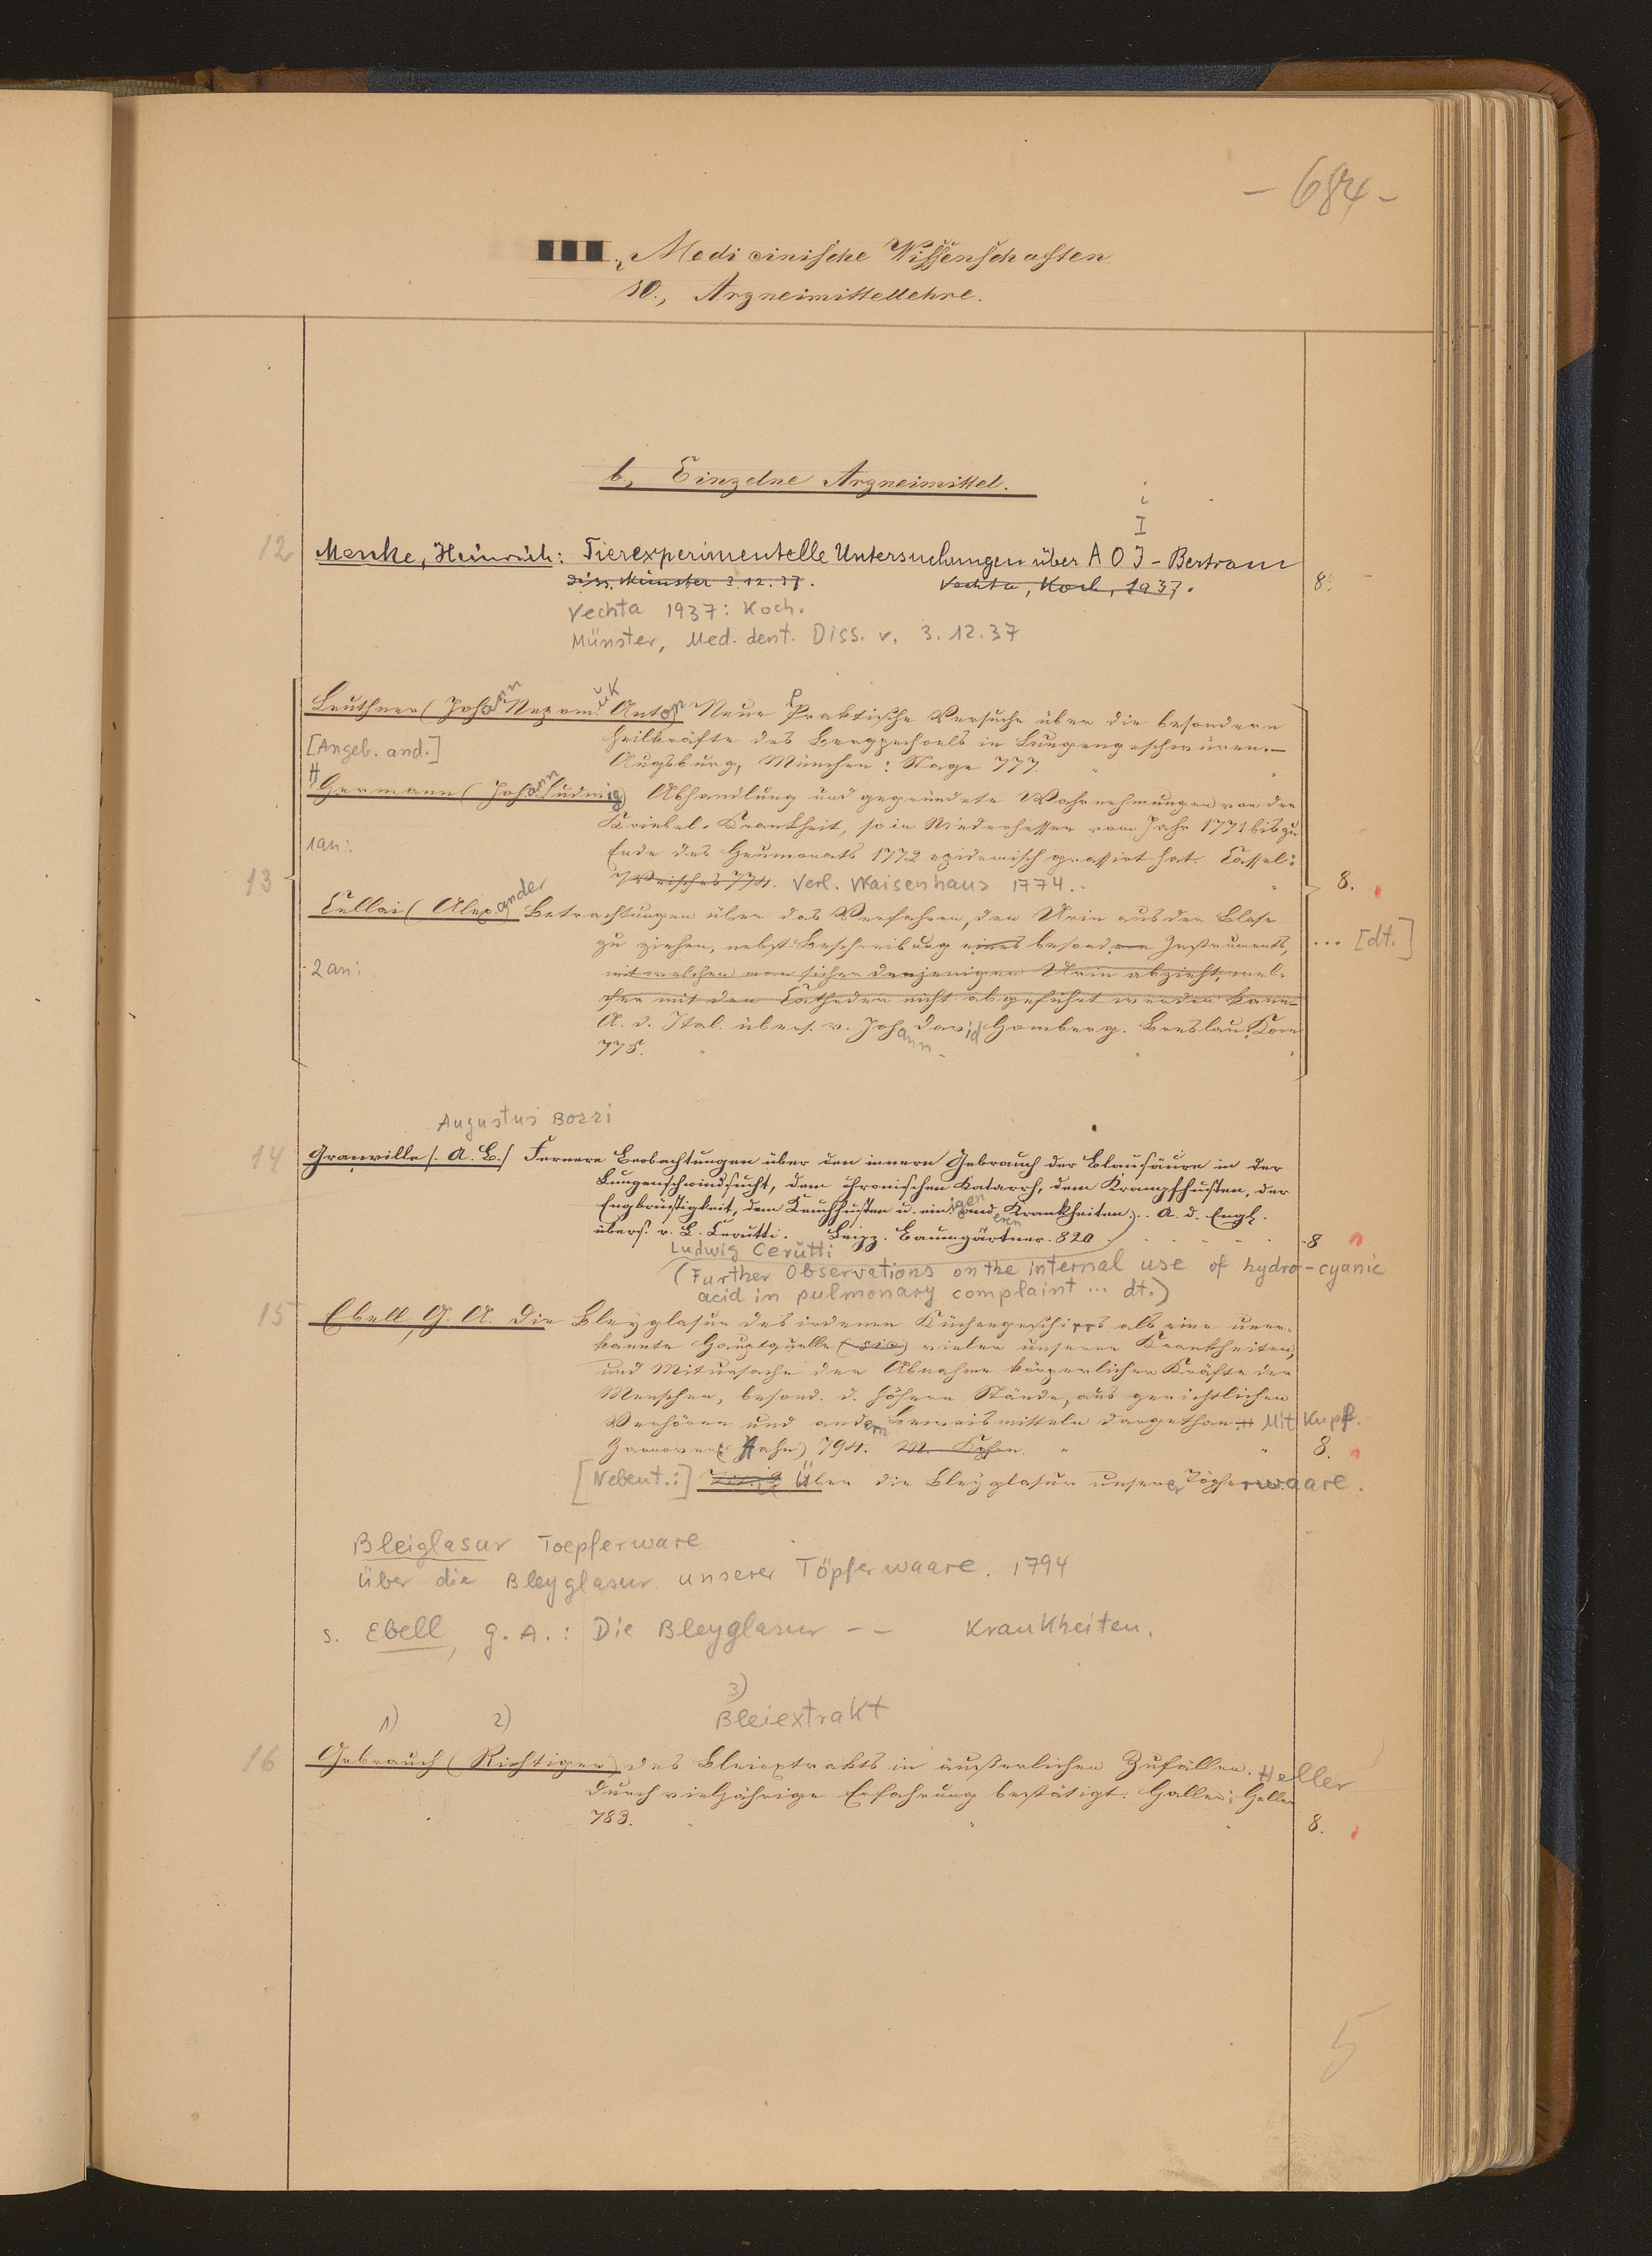 - 684 -
Medicinische Wissenschaften
10., Arzneimittellehre.
b., Einzelne Arzneimittel.
i
I
12 Menke, Heinrich: Tierexperimentelle Untersuchungen über A O J - Bertram
Diss. Münster 3.12.37. Vechta, Koch, 1937. 8°
Vechta 1937: Koch.
Münster, Med. dent. Diss. v. 3.12.37
Leuthner (Johann Nepomuk Anton) Neue Praktische Versuche über die besondern
Heilkräfte des Bergpechoels in Lungengeschwüren.—
[Angeb. and.]
Augsburg, München: Stage 777.
Hermann (Johann Ludwig) Abhandlung und gegründete Wahrnehmungen von der
Kriebel-Krankheit, so in Niederhessen vom Jahr 1771 bis zu
1an: Ende des Heumonats 1772 epidemisch grassirt hat. Cassel:
13 774. Verl. Waisenhaus 1774. 8.
Cellai (Alexander Betrachtungen über das Verfahren, den Urin aus der Blase
zu ziehen, nebst Beschreibung eines besondren Instruments, ... [dt.]
2an: mit welchen man sicher denjenigen Urin abzieht, wel-
cher mit den Catheder nicht abgeführt werden kann.
A. d. Ital. übers. v. Johann David Homberg. Breslau: Korn
775.
Augustus Bozzi
14 Granville (A. B.) Fernere Beobachtungen über den innern Gebrauch der Blausäure in der
Lungenschwindsucht, dem chronischen Katarrh, dem Krampfhusten, der
Engbrüstigkeit, dem Keuchhusten u. einigen anderen Krankheiten. A. d. Engl.
übers. v. L. Cerutti. Leipz. Baumgärtner. 820 8
Ludwig Cerutti
(Further Observations on the internal use of hydro-cyanic
acid in pulmonary complaint ... dt.)
15 Ebell, G. A. Die Bleyglasur des irdenen Küchengeschirrs als eine uner-
kannte Hauptquelle (sic) vieler unserer Krankheiten,
und Mitursache der Abnahme körperlicher Kräfte der
Menschen, besond. d. höhern Stände, aus gerichtlichen
Verhören und andern Beweismitteln dargethan. Mit Kupf.
Hannover (Hahn) 794. M. Kpfrn. 8.
[Nebent.:] Über die Bleyglasur unserer Töpferwaare.
Bleiglasur Toepferware
Über die Bleyglasur unserer Töpferwaare. 1794
s. Ebell, G. A.: Die Bleyglasur -- Krankheiten.
3)
1) 2) Bleiextrakt
16 Gebrauch (Richtiger) des Bleiextrakts in äußerlichen Zufällen. Heller
durch vieljährige Erfahrung bestätigt. Halle: Heller
783. 8.
5